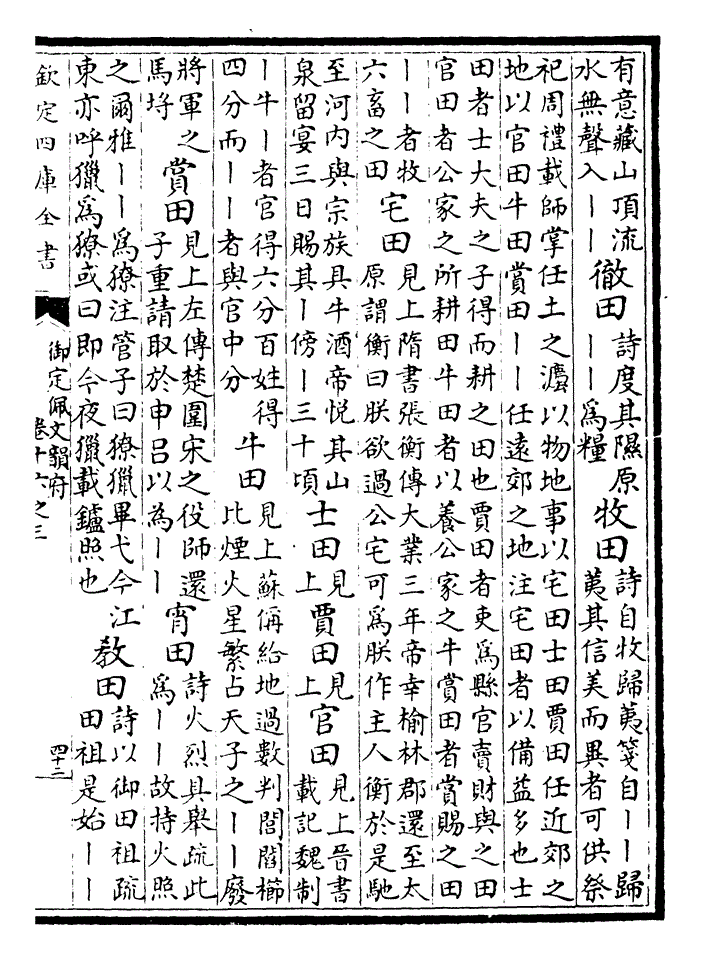 有意藏山頂流
水無聲入丨丨
徹田
詩度其隰原
丨丨爲糧
牧田
詩自牧歸荑箋自丨丨歸
荑其信美而異者可供祭
祀周禮載師掌任土之灋以物地事以宅田士田賈田任近郊之
地以官田牛田賞田丨丨任遠郊之地注宅田者以備益多也士
田者士大夫之子得而耕之田也賈田者吏爲縣官賣財與之田
官田者公家之所耕田牛田者以養公家之牛賞田者賞賜之田
丨丨者牧
六畜之田
宅田
見上隋書張衡傳大業三年帝幸榆林郡還至太
原謂衡曰朕欲過公宅可爲朕作主人衡於是馳
至河内與宗族具牛酒帝悦其山
泉留宴三日賜其丨傍丨三十頃
士田
見上
賈田
見上
官田
見上晉書
載記魏制
丨牛丨者官得六分百姓得
四分而丨丨者與官中分
牛田
見上蘇偁給地過數判閭閻櫛
比煙火星繁占天子之丨丨廢
將軍之
馬埒
賞田
見上左傳楚圍宋之役師還
子重請取於申吕以為丨丨
宵田
詩火烈具舉疏此
爲丨丨故持火照
之爾雅丨丨爲獠注管子曰獠獵畢弋今江
東亦呼獵爲獠或曰即今夜獵載鑪照也
敎田
詩以御田祖疏
田祖是始丨丨
欽定四庫全書
御定佩文韻府
卷十六之三
四十三